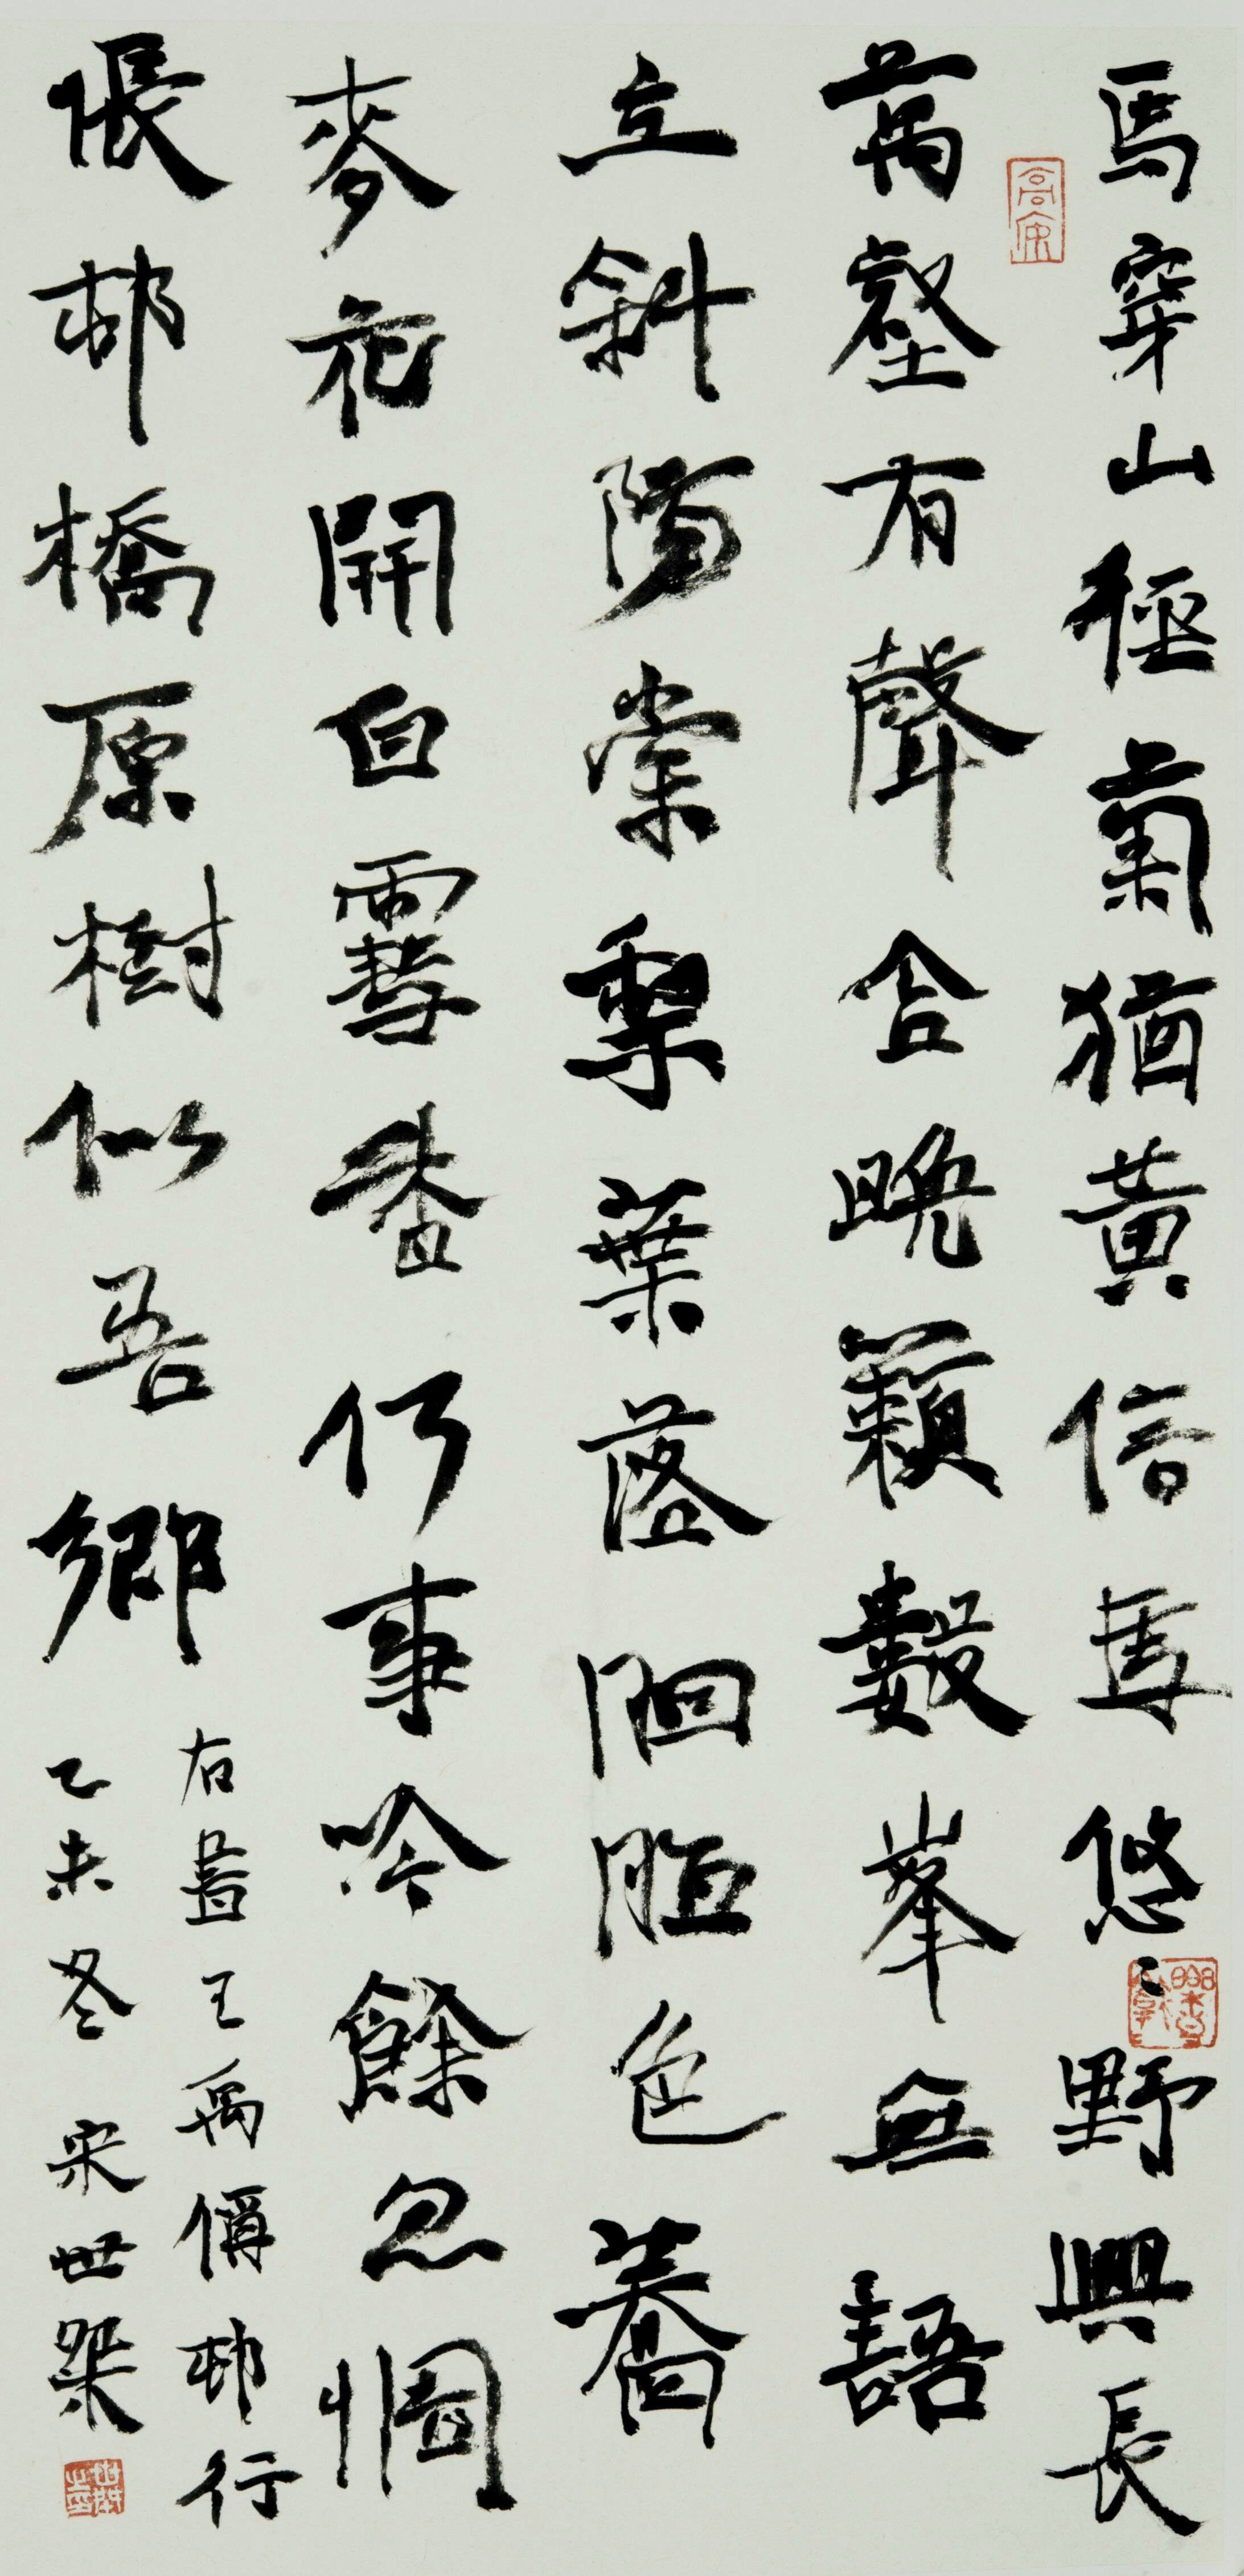 馬穿山徑菊猶黃信馬悠〻野興長
萬壑有聲含晚籟數峯無語
立斜陽棠梨葉落胭脂色蕎
麥花開白雪香何事吟餘忽惆
悵邨橋原樹似吾鄉
右書王禹偁邨行
乙未冬 宋世